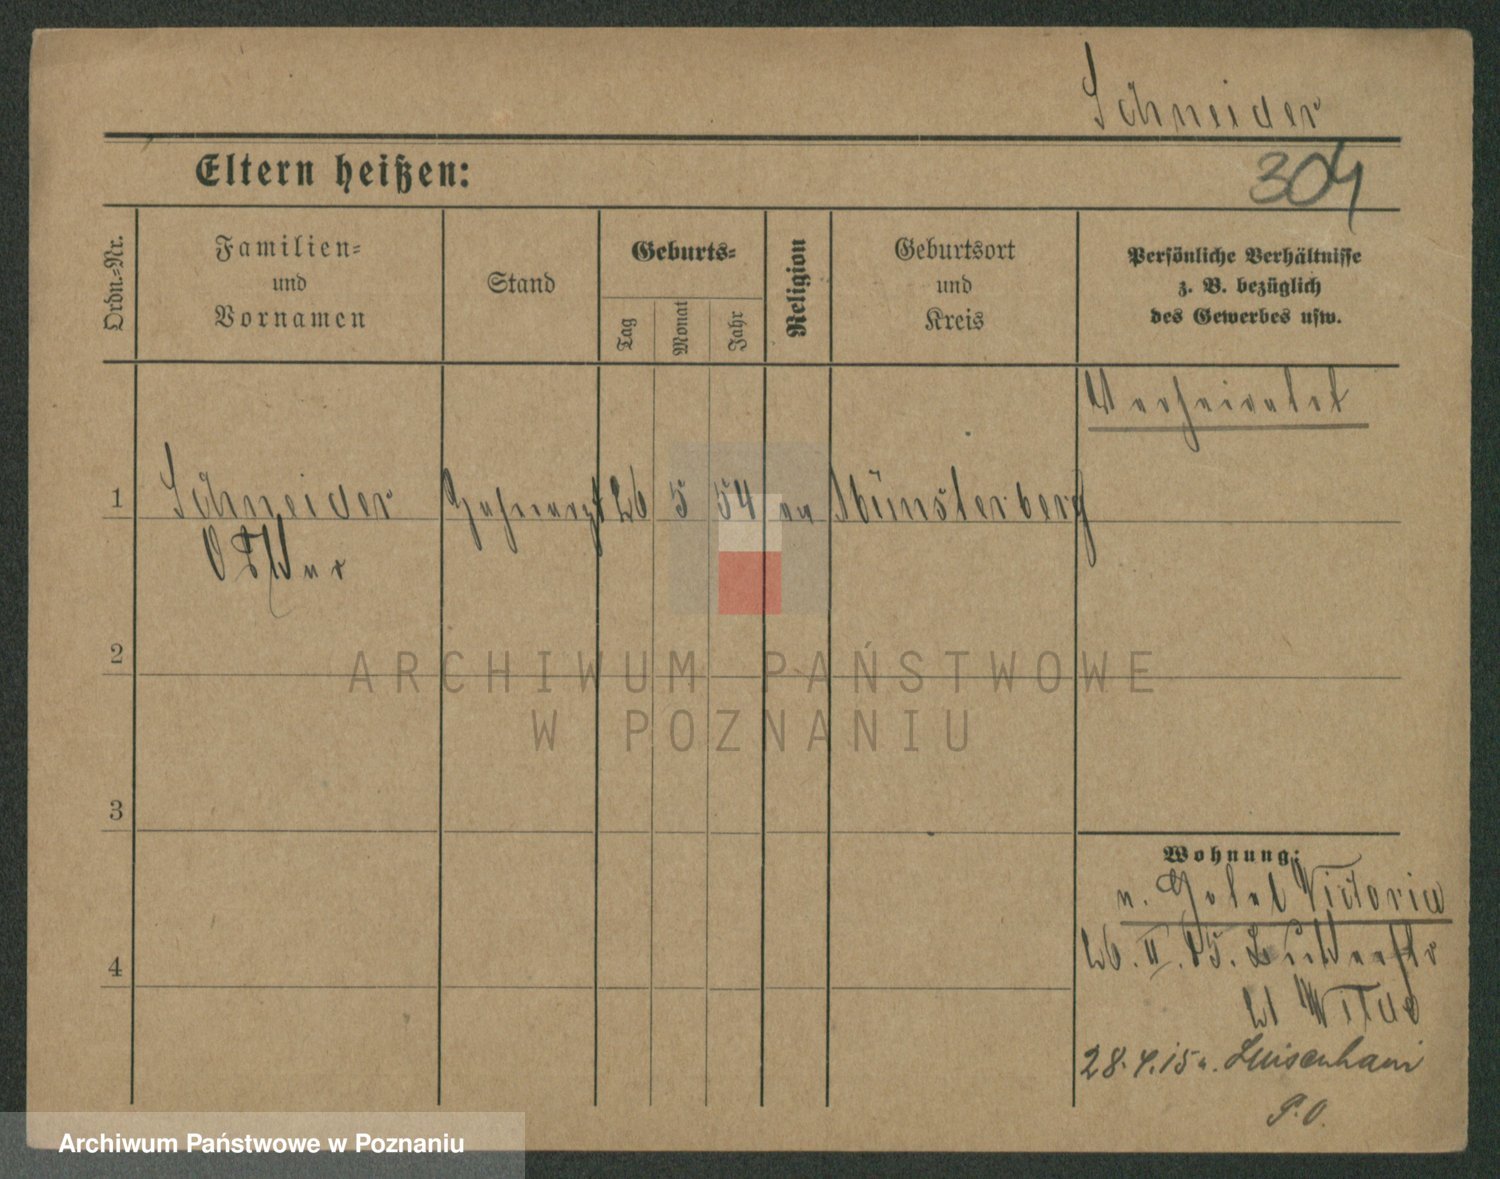 Schneider
Eltern heißen:
304
Ordn.-Nr.
Familien-
und
Vornamen
Stand
Geburts-
Tag
Monat
Jahr
Religion
Geburtsort
und
Kreis
Persönliche Verhältnisse
z. B. bezüglich
des Gewerbes usw.
Verheiratet
1 Schneider Zahnarzt 26 5 54 ev Münsterberg
Oskar
2
3
4
Wohnung:
n. Hotel Victoria
26. II. 15.
bei
28.4.15 n. Luisenhain
P. O.
ARCHIWUM PAŃSTWOWE
W POZNANIU
Archiwum Państwowe w Poznaniu